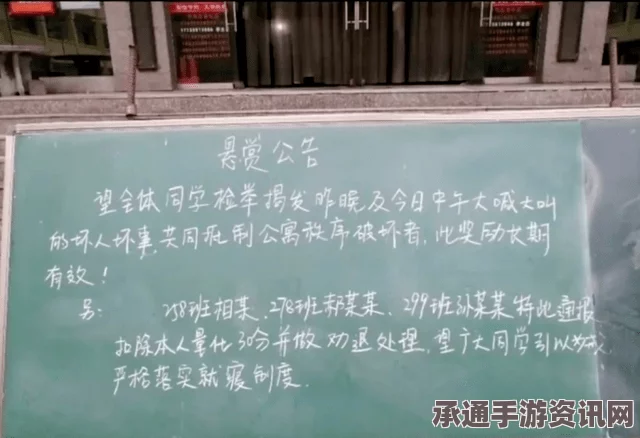 悬赏公告
望全体同学检举揭发昨晚及今日中午大喊大叫
的坏人坏事,共同抵制公寓秩序破坏者,此奖励长期
有效!
另: 258班相某、278班郝某某、299班孙某某特此通报
扣除本人量化30分并做劝退处理,望广大同学引以为戒
严格落实就寝制度.
承通手游资讯网
www.ctsyzx.com